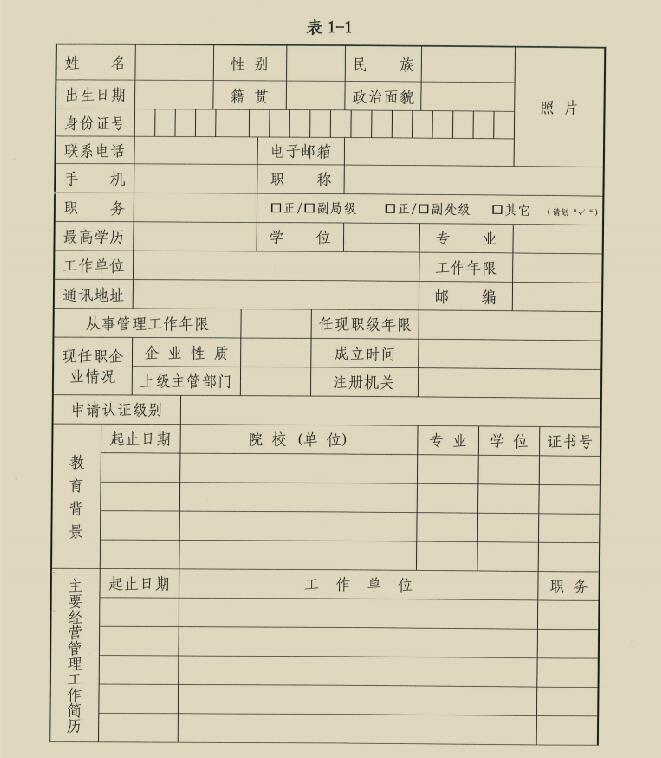 表1-1
姓 名 性 别 民 族
出生日期 籍 贯 政治面貌 照 片
身份证号
联系电话 电子邮箱
手 机 职 称
职 务 □正/□副局级 □正/□副处级 □其它 (请划“√”)
最高学历 学 位 专 业
工作单位 工作年限
通讯地址 邮 编
从事管理工作年限 任现职级年限
现任职企业情况 企 业 性 质 成立时间
上级主管部门 注册机关
申请认证级别
教育背景 起止日期 院 校 (单 位) 专 业 学 位 证书号
主要经营管理工作简历 起止日期 工 作 单 位 职 务